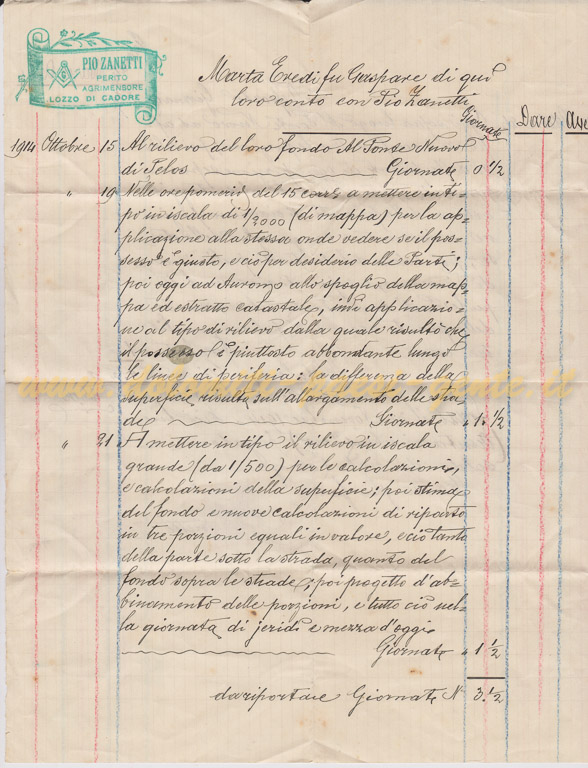 PIO ZANETTI
PERITO
AGRIMENSORE
LOZZO DI CADORE
Marta Eredi fu Gaspare di qui
loro conto con Pio Zanetti
Giornate Dare Ave
1914 Ottobre 15 Al rilievo del loro fondo Al Ponte Nuovo
di Pelos Giornate 0 1/2
" 19 Nelle ore pomerid. del 15 corr. a mettere in ti-
po in iscala di 1/2000 (di mappa) per la ap-
plicazione alla stessa onde vedere se il pos-
sesso è giusto, e ciò per desiderio delle Parti;
poi oggi ad Auronzo allo spoglio della map-
pa ed estratto catastale, indi applicazio-
ne al tipo di rilievo dalla quale risultò che
il possesso è piuttosto abbondante lungo
le linee di periferia: la differenza della
superficie risulta sull'allargamento delle stra
de Giornate " 1. 1/2
" 21 A mettere in tipo il rilievo in iscala
grande (da 1/500) per le calcolazioni,
e calcolazioni della superficie; poi stima
del fondo e nuove calcolazioni di riparto
in tre porzioni eguali in valore, e ciò tanto
della parte sotto la strada, quanto del
fondo sopra le strade; poi progetto d'ab-
binamento delle porzioni, e tutto ciò nel-
la giornata di jeridì e mezza d'oggi
Giornate " 1 1/2
da riportare Giornate N. 3. 1/2